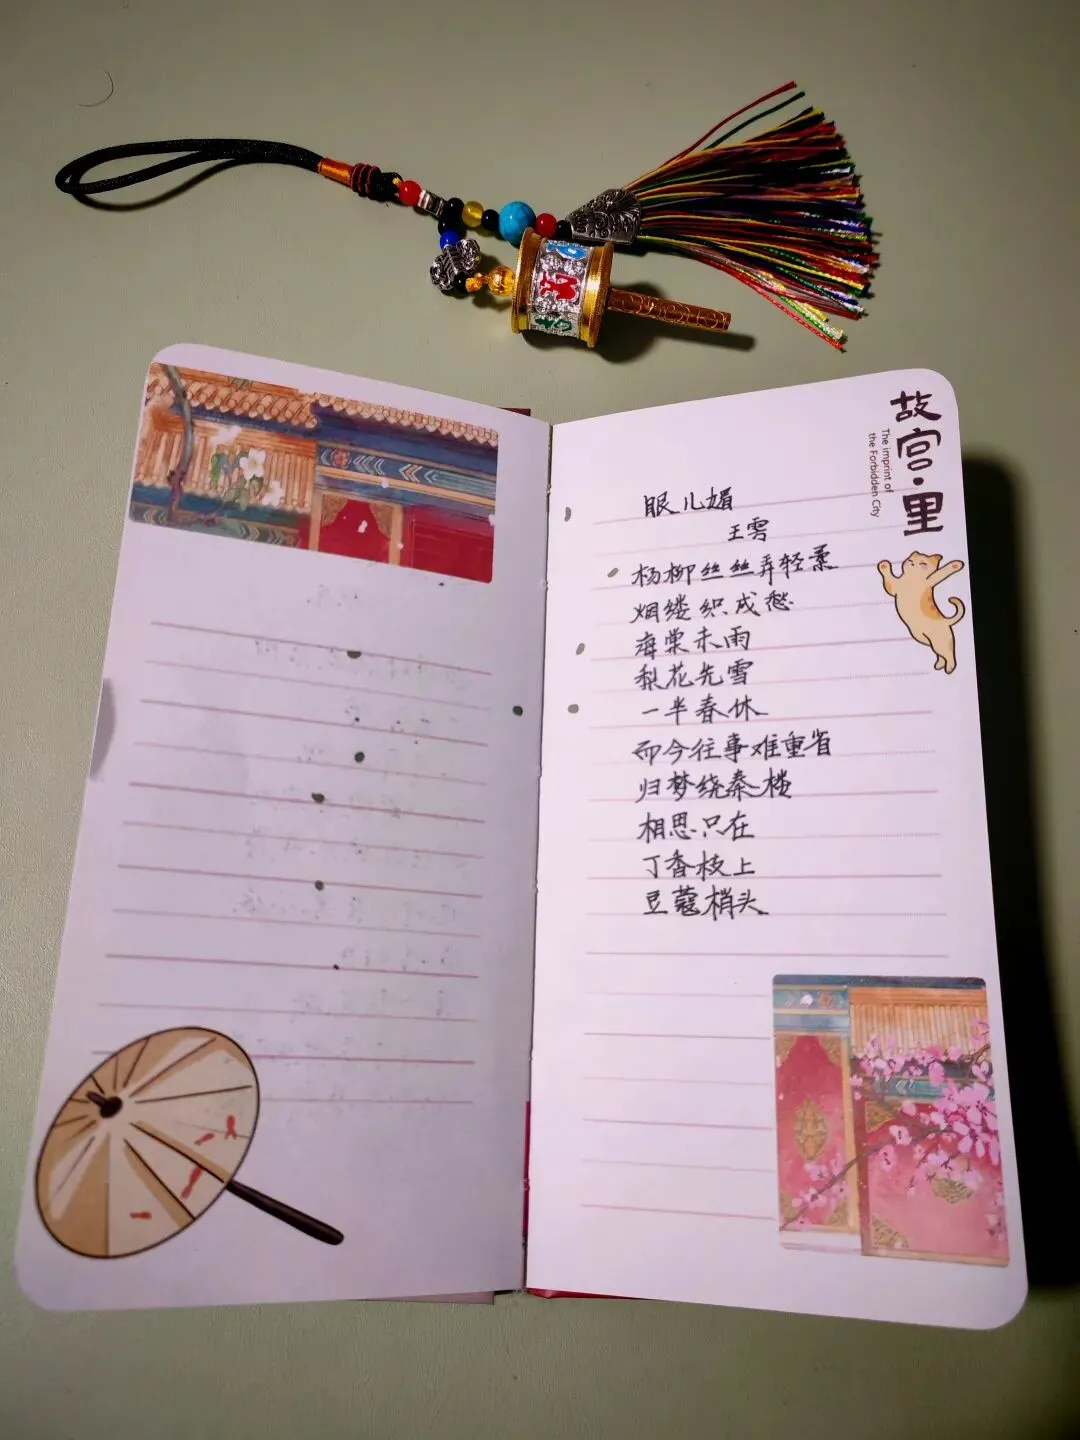 故宫·里
The imprint of
the Forbidden City
眼儿媚
王雱
杨柳丝丝弄轻柔
烟缕织成愁
海棠未雨
梨花先雪
一半春休
而今往事难重省
归梦绕秦楼
相思只在
丁香枝上
豆蔻梢头